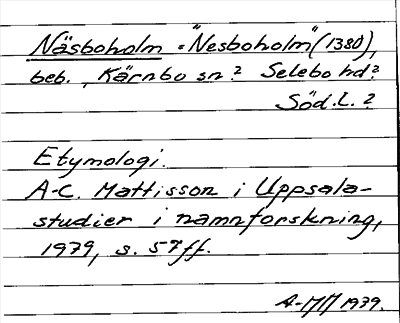 Näsboholm = "Nesboholm" (1380),
beb., Kärnbo sn? Selebo hd?
Söd.L.?
Etymologi.
A-C. Mattisson i Uppsala-
studier i namnforskning,
1979, s. 57ff.
1979.